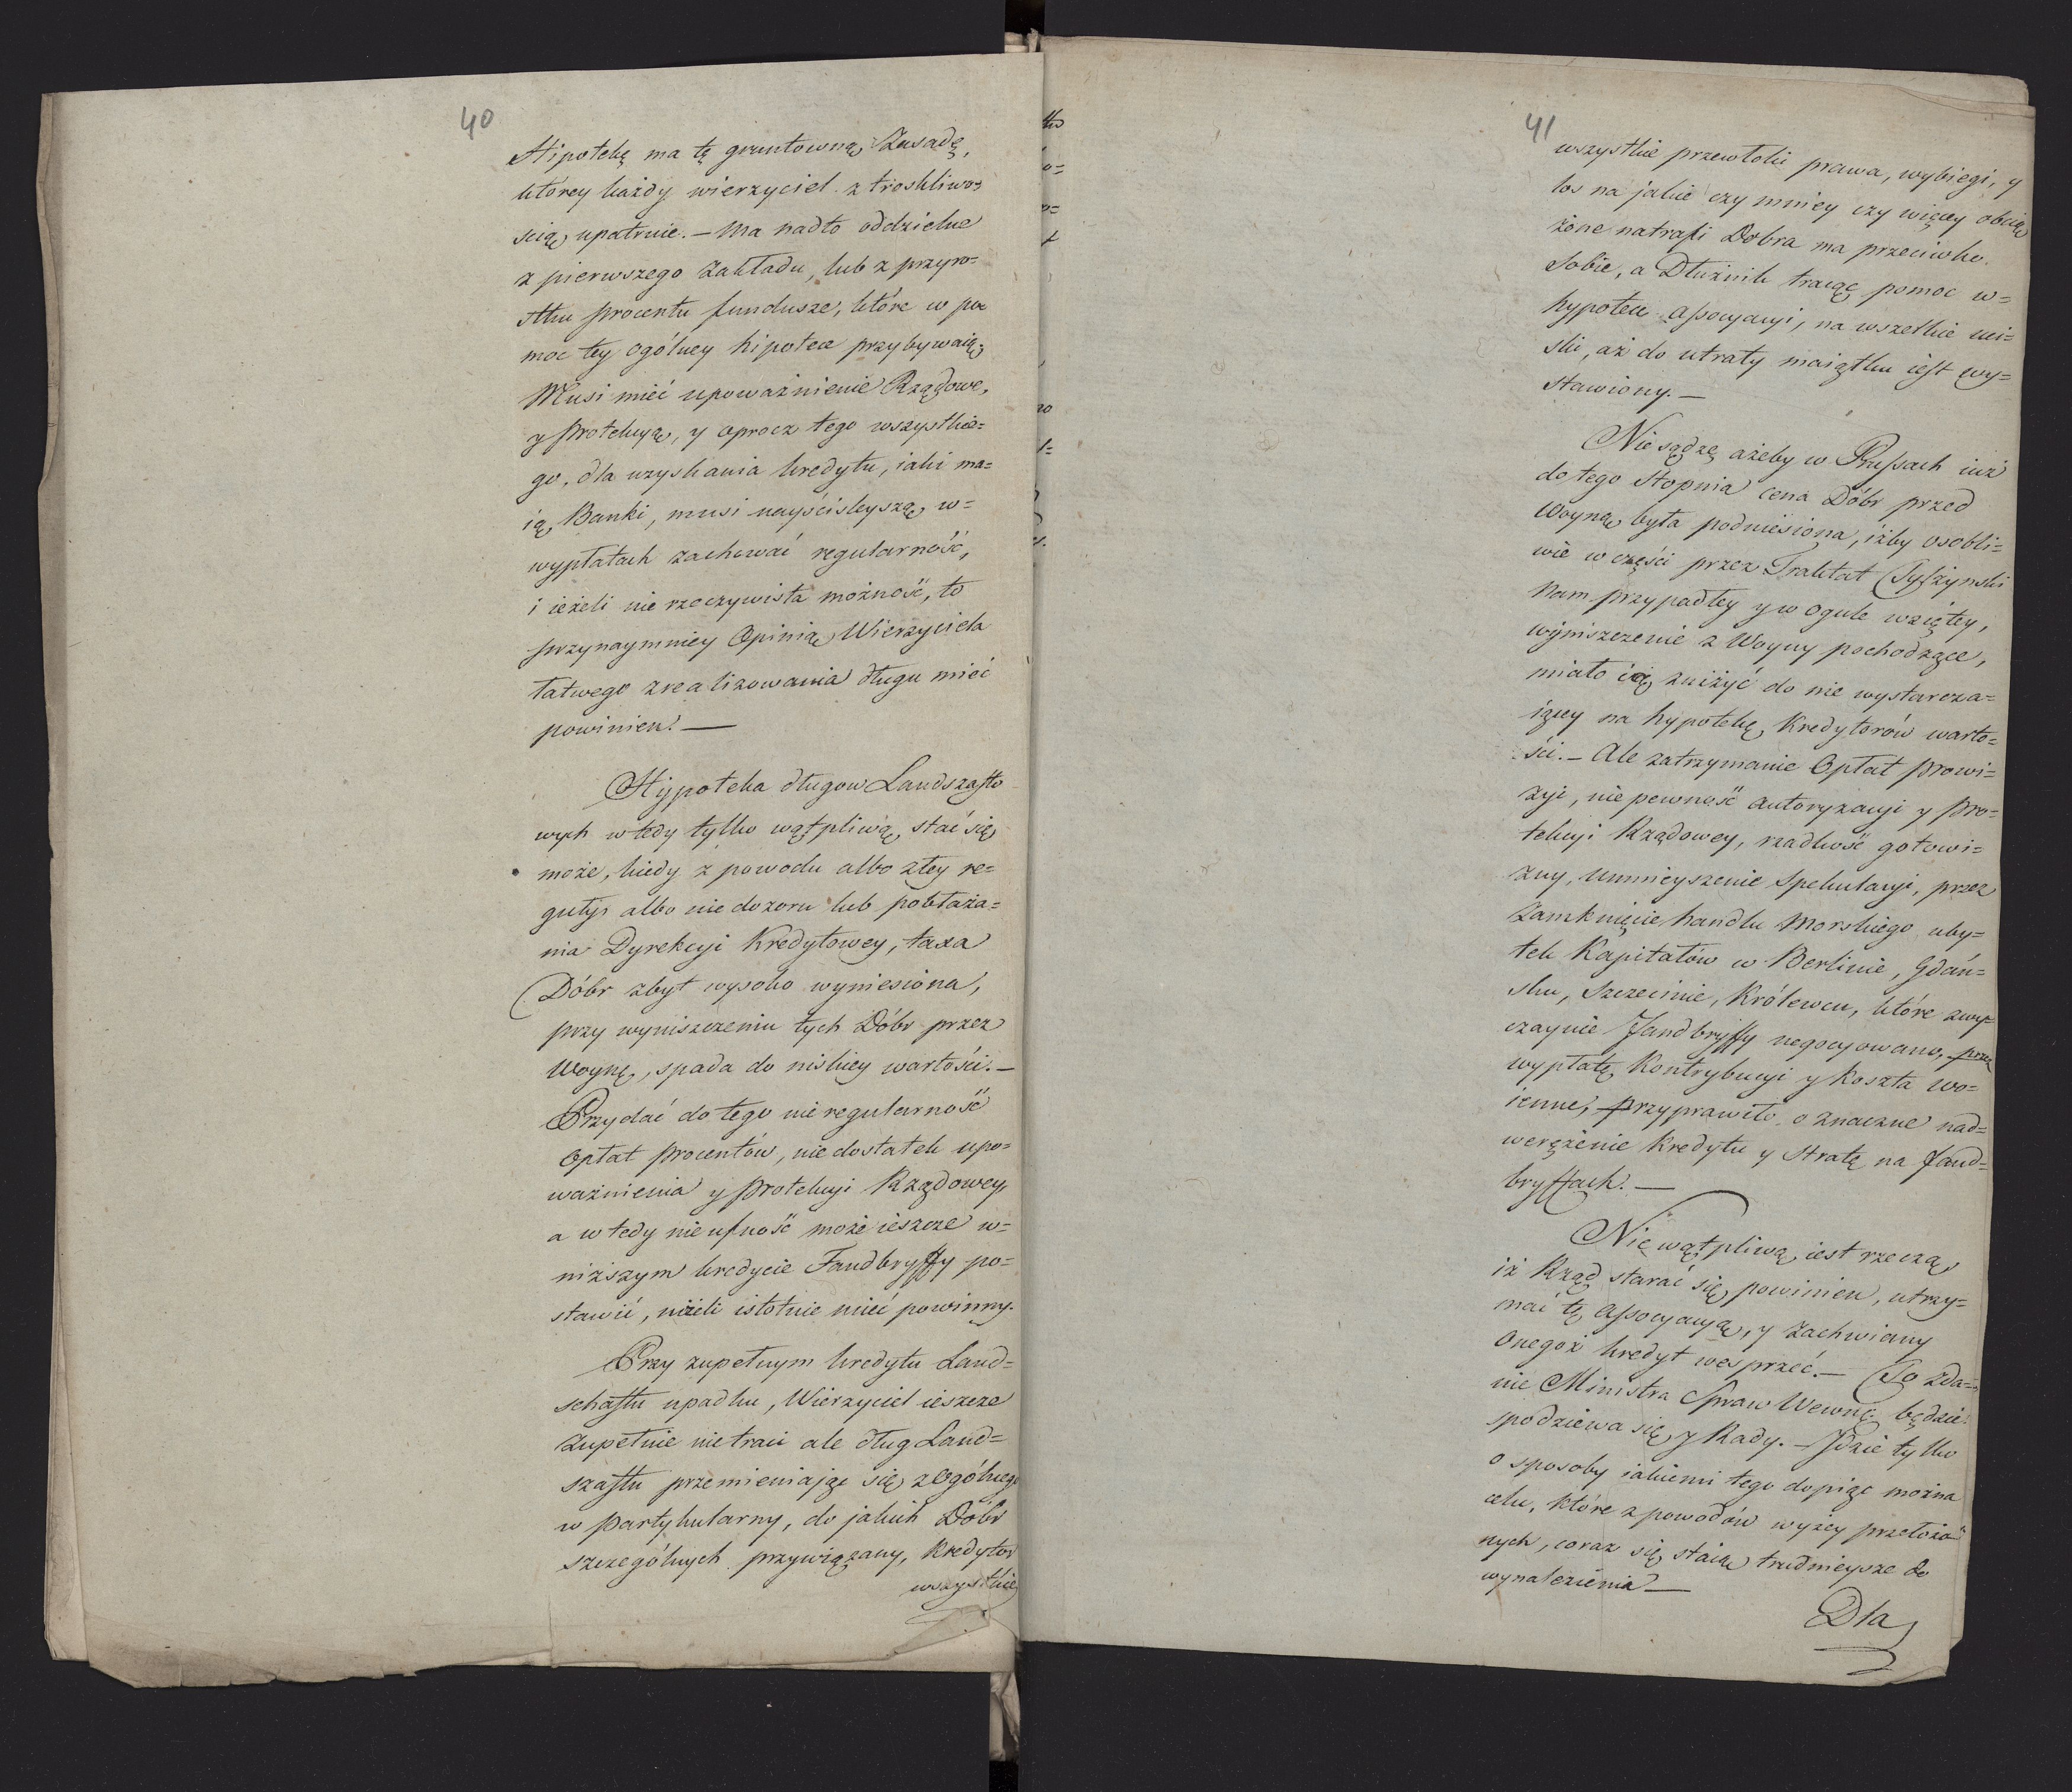 40
Hipotekę ma tę gruntowną Zasadę,
którey każdy wierzyciel z troskliwo=
scią upatruie. — Ma nadto oddzielne
z pierwszego Zakładu, lub z przyro=
stku procentu fundusze, które w po
moc tey ogólney hipotece przybywaią,
Musi mieć upoważnienie Rządowe,
y protekcyą, y oprocz tego wszystkie=
go, dla uzyskania kredytu, iaki ma=
ią Banki, musi nayściśleyszą w=
wypłatach zachować regularność,
i ieżeli nie rzeczywista możność, to
przynaymniey Opinią Wierzyciela
łatwego zrealizowania długu mieć
powinien. —
Hypoteka długow Landszafto
wych wtedy tylko wątpliwą stać się
może, kiedy z powodu albo złey re=
guły, albo nie dozoru lub pobłaża=
nia Dyrekcyi Kredytowey, taxa
Dóbr zbyt wysoko wyniesiona,
przy wyniszczeniu tych Dóbr przez
Woynę, spada do niskiey wartości. —
Przydać do tego nieregularność
Opłat procentów, nie dostatek upo=
ważnienia y protekcyi Rządowey,
a wtedy nie ufność może ieszcze w=
niższym kredycie Fandbryffy po=
stawić, niżeli istotnie mieć powinny.
Przy zupełnym kredytu Land=
schaftu upadku, Wierzyciel ieszcze
zupełnie nie traci ale dług Land=
szaftu przemieniając się z Ogólnego
w partykularny, do jakich Dóbr
szczególnych przywiązany, Kredytor
wszystkie
41
wszystkie przewłoki prawa, wybiegi, y
los na jakie czy mniey czy więcey obcią
żone natrafi Dobra ma przeciwko
Sobie, a Dłużnik tracąc pomoc w=
hypotece assocyacyi, na wszelkie uci=
ski, aż do utraty maiątku iest wy=
stawiony. —
Nie sądzę ażeby w Prussach iuż
do tego stopnia cena Dóbr przed
Woyną była podniesiona, iżby osobli=
wie w części przez Traktat Tylżynski
Nam przypadłey y w ogule wziętey,
wyniszczenie z Woyny pochodzące,
miało ią zniżyć do nie wystarcza=
iącey na hypotekę, Kredytorów warto=
ści. — Ale zatrzymanie Opłat prowi=
zyi, nie pewność autoryzacyi y pro=
tekcyi Rządowey, rzadkość gotowi=
zny, umnieyszenie Spekulacyi, przez
Zamknięcie handlu Morskiego uby=
tek Kapitałów w Berlinie, Gdań=
sku, Szczecinie, Królewcu, które zwy=
czaynie Fandbryffy negocyowano, przez
wypłatę Kontrybucyi y Koszta wo=
ienne, przyprawiło o znaczne nad=
werężenie Kredytu y Stratę na Fand=
bryffach. —
Nie wątpliwą iest rzeczą,
iż Rząd starać się powinien, utrzy=
mać tę Assocyacyą, y zachwiany
Onegoż kredyt wesprzeć. — To zda=
nie Ministra Spraw Wewnę: będzie
spodziewa się y Rady. — Idzie tylko
o sposoby iakiemi tego dopiąc można
celu, które z powodów wyżey przełożo=
nych, coraz się staią trudnieysze do
wynalezienia —
Dla